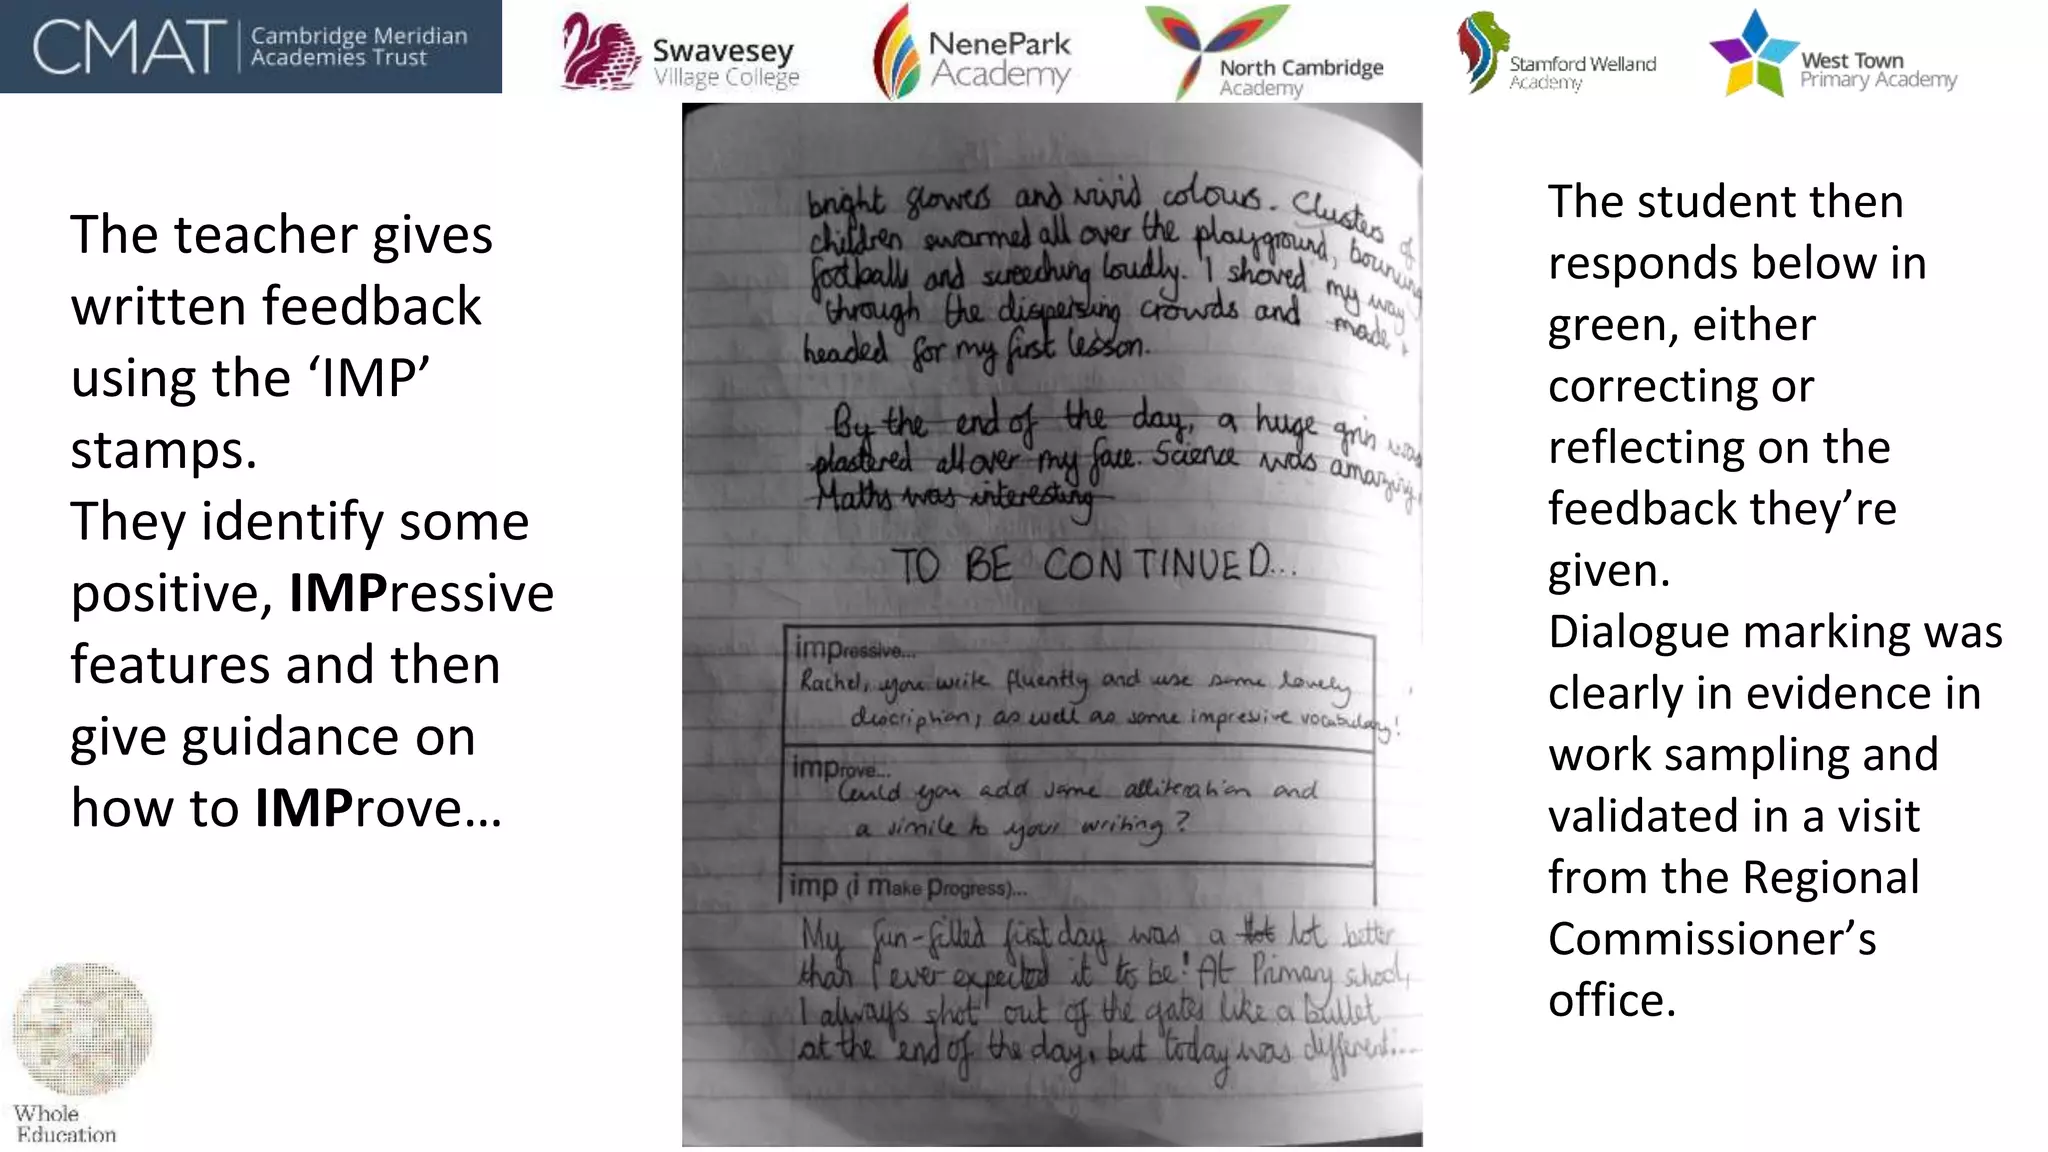 CMAT
Cambridge Meridian
Academies Trust
Swavesey
Village College
NenePark
Academy
North Cambridge
Academy
Stamford Welland
Academy
West Town
Primary Academy
The teacher gives
written feedback
using the ‘IMP’
stamps.
They identify some
positive, IMPressive
features and then
give guidance on
how to IMProve…
bright glowes and vivid colours. Clusters of
children swarmed all over the playground, bouncing
footballs and screeching loudly. I shoved my way
through the dispersing crowds and made
headed for my first lesson.
By the end of the day, a huge grin was
plastered all over my face. Science was amazing,
Maths was interesting
TO BE CONTINUED...
impressive...
Rachel, you write fluently and use some lovely
description, as well as some impressive vocabulary!
improve...
Could you add some alliteration and
a simile to your writing?
imp (i make progress)...
My fun-filled first day was a lot lot better
than I ever expected it to be! At Primary school,
I always shot out of the gates like a bullet
at the end of the day, but today was different....
The student then
responds below in
green, either
correcting or
reflecting on the
feedback they’re
given.
Dialogue marking was
clearly in evidence in
work sampling and
validated in a visit
from the Regional
Commissioner’s
office.
Whole
Education